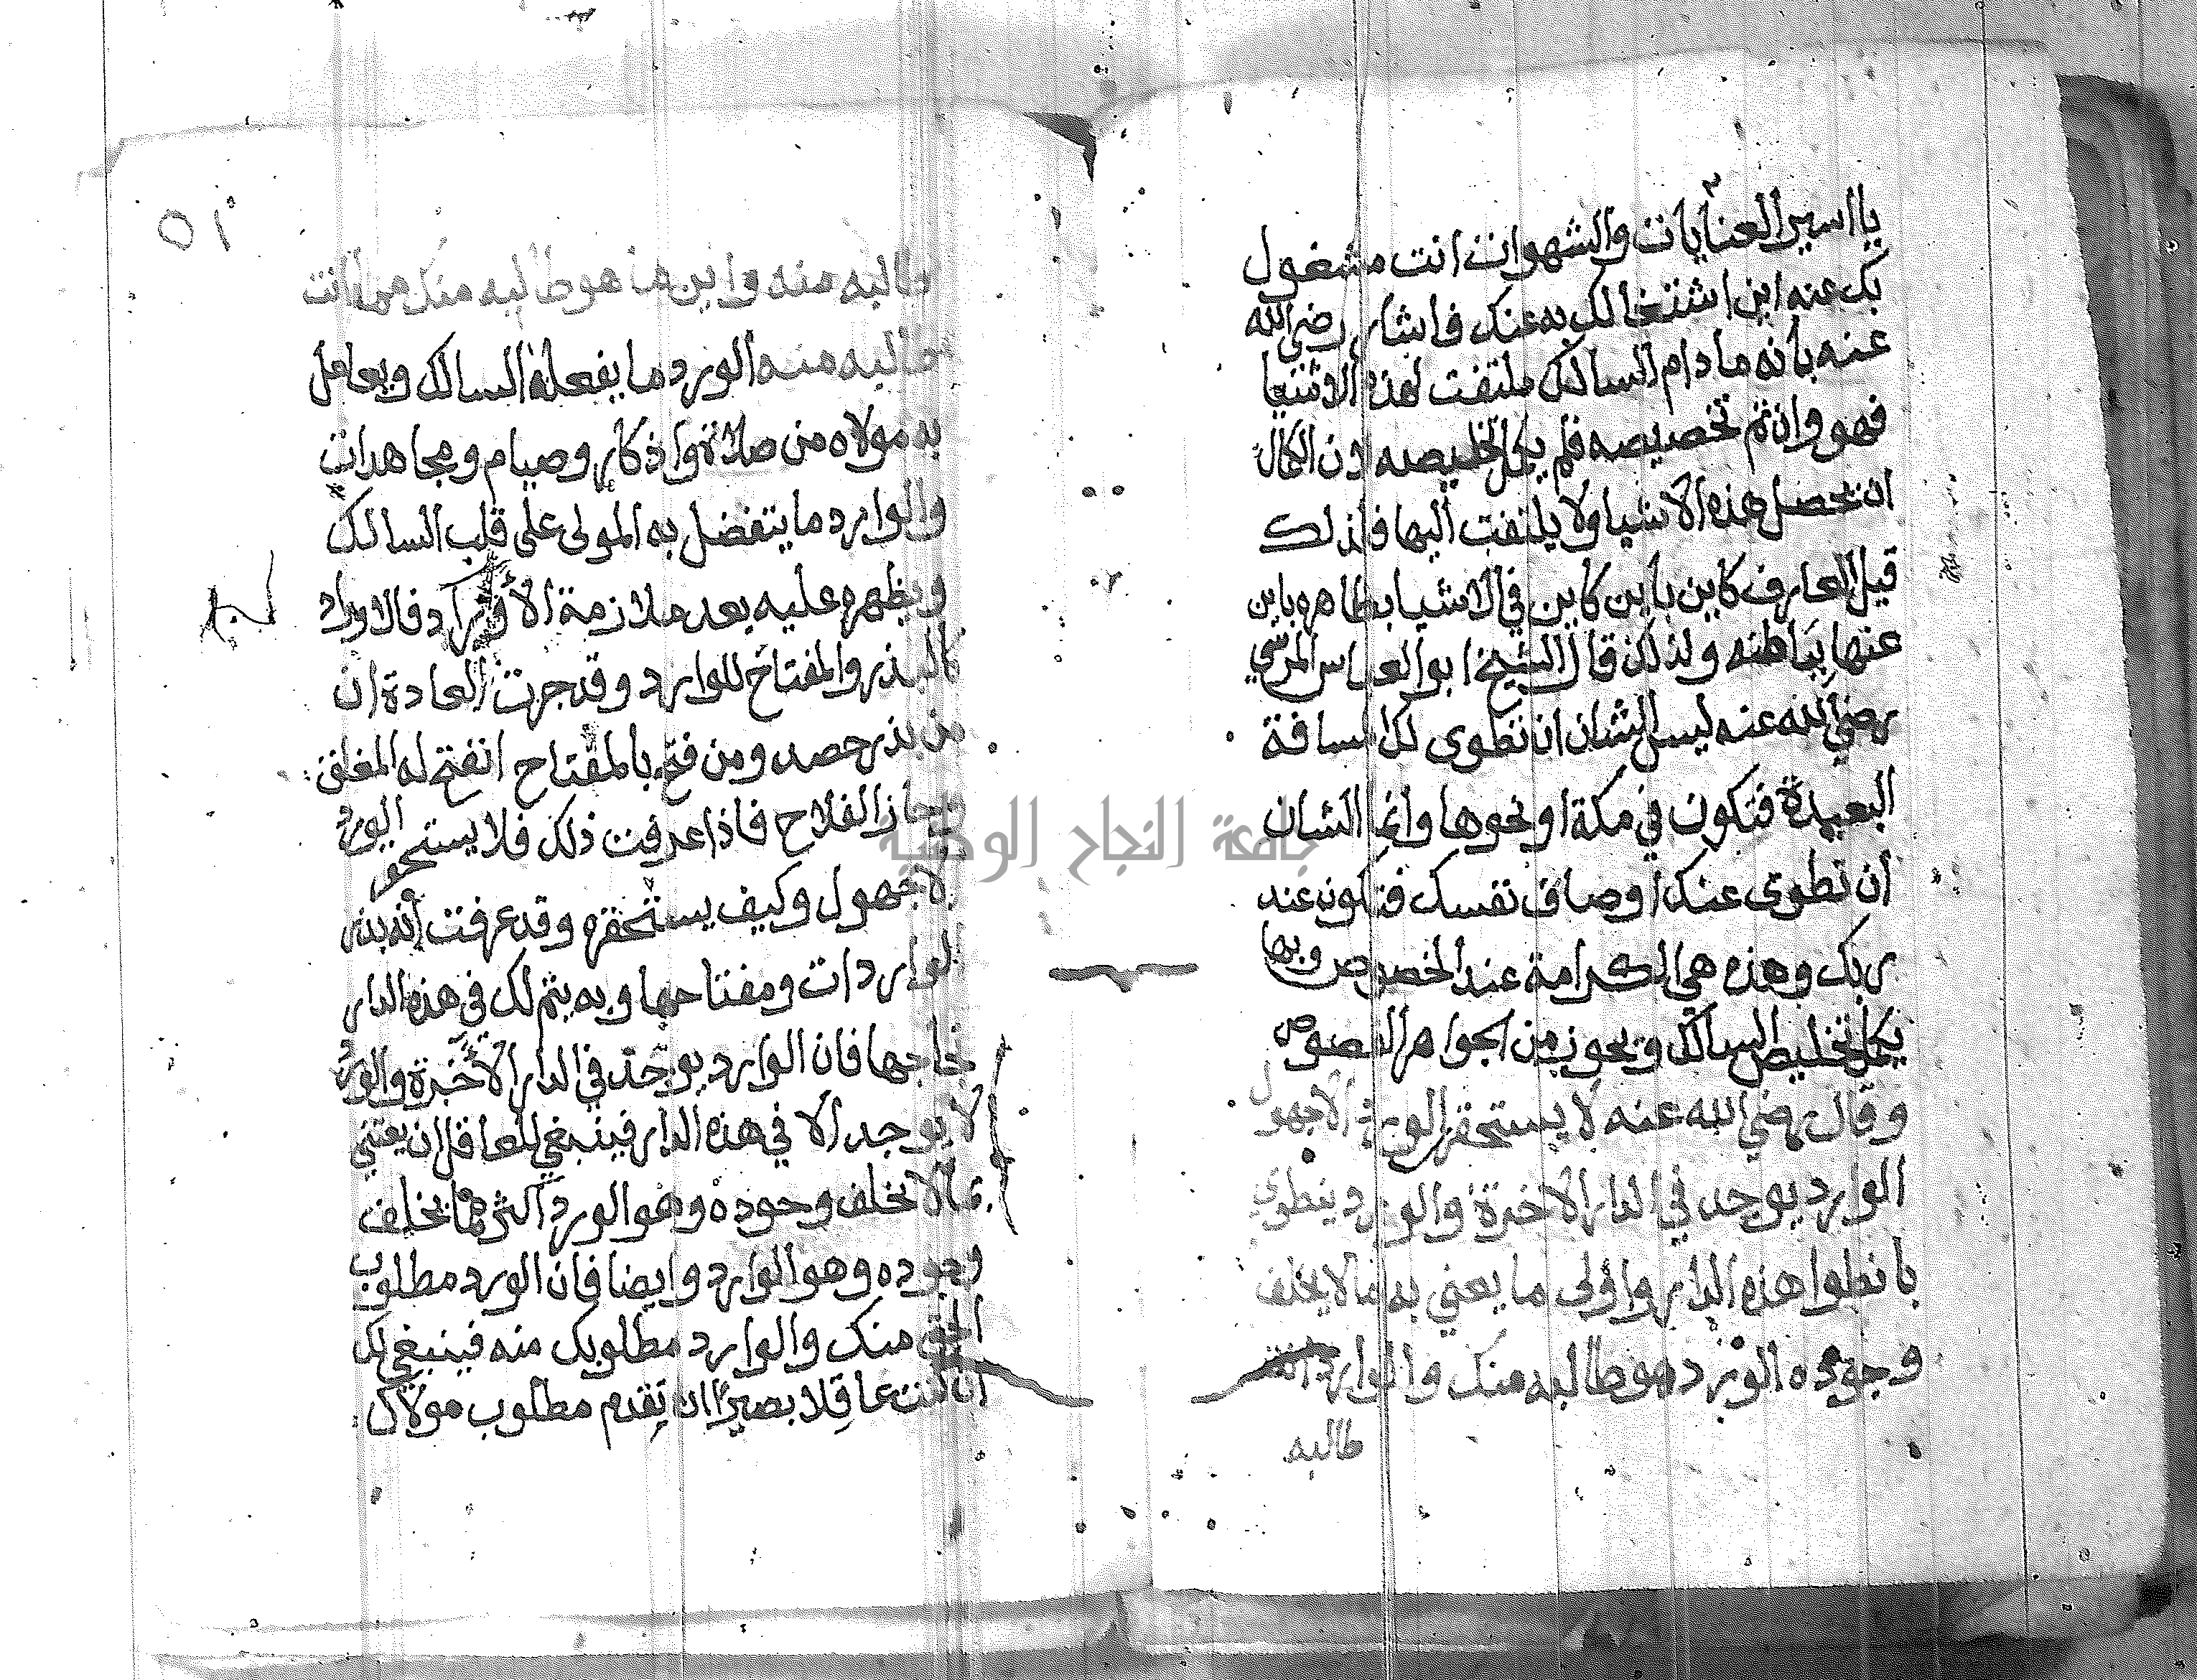 يا اسير العنايات والشهوات انت مشغول
بك عنه اين اشتغالك به عنك فاشار رضي الله
عنه بانه ما دام السالك ملتفت لهذه الاشيا
فهو وان تم تخصيصه فلم يكمل تخليصه اذ ن الكمال
ان تحصل هذه الاشيا ولا يلتفت اليها فلذلك
قيل العارف كاين باين كاين في الاشيا بظاهره باين
عنها بباطنه ولذلك قال الشيخ ابو العباس المرسي
رضي الله عنه ليس الشان ان تطوى لك المسافة
البعيدة فتكون في مكة او نحوها وانما الشان
ان تطوى عنك اوصاف نفسك فتكون عند
ربك وهذه هي الكرامة عند الخصوص وبها
يكمل تخليص السالك ويحوز من الجواهر الفصوص
وقال رضي الله عنه لا يستحقر الورد الا جهول
الوارد يوجد في الدار الاخرة والورد ينطوي
بانطوا هذه الدار واولى ما يعني به ما لا يخلف
وجوده الورد هو طالبه منك والوارد انت
طالبه
٥١
طالبه منه واين ما هو طالبه منك مما انت
طالبه منه الورد ما يفعله السالك ويعامل
به مولاه من صلاة واذكار وصيام ومجاهدات
والوارد ما يتفضل به المولى على قلب السالك
ويظهره عليه بعد ملازمة الأوراد فالاوراد
كالبذر والمفتاح للوارد وقد جرت العادة ان
من بذر حصد ومن فتح بالمفتاح انفتح له المغلق
وحاز الفلاح فاذا عرفت ذلك فلا يستحقر الورد
الا جهول وكيف يستحقره وقد عرفت انه بذر
الواردات ومفتاحها وبه يتم لك في هذه الدار
نتاجها فان الوارد يوجد في الدار الآخرة والورد
لا يوجد الا في هذه الدار فينبغي للعاقل ان يعتني
بما لا يخلف وجوده وهو الورد اكثر مما يخلف
وجوده وهو الوارد وايضا فان الورد مطلوب
الحق منك والوارد مطلوبك منه فينبغي لك
ان كنت عاقلا بصيرًا ان تقدم مطلوب مولاك
جامعة النجاح الوطنية